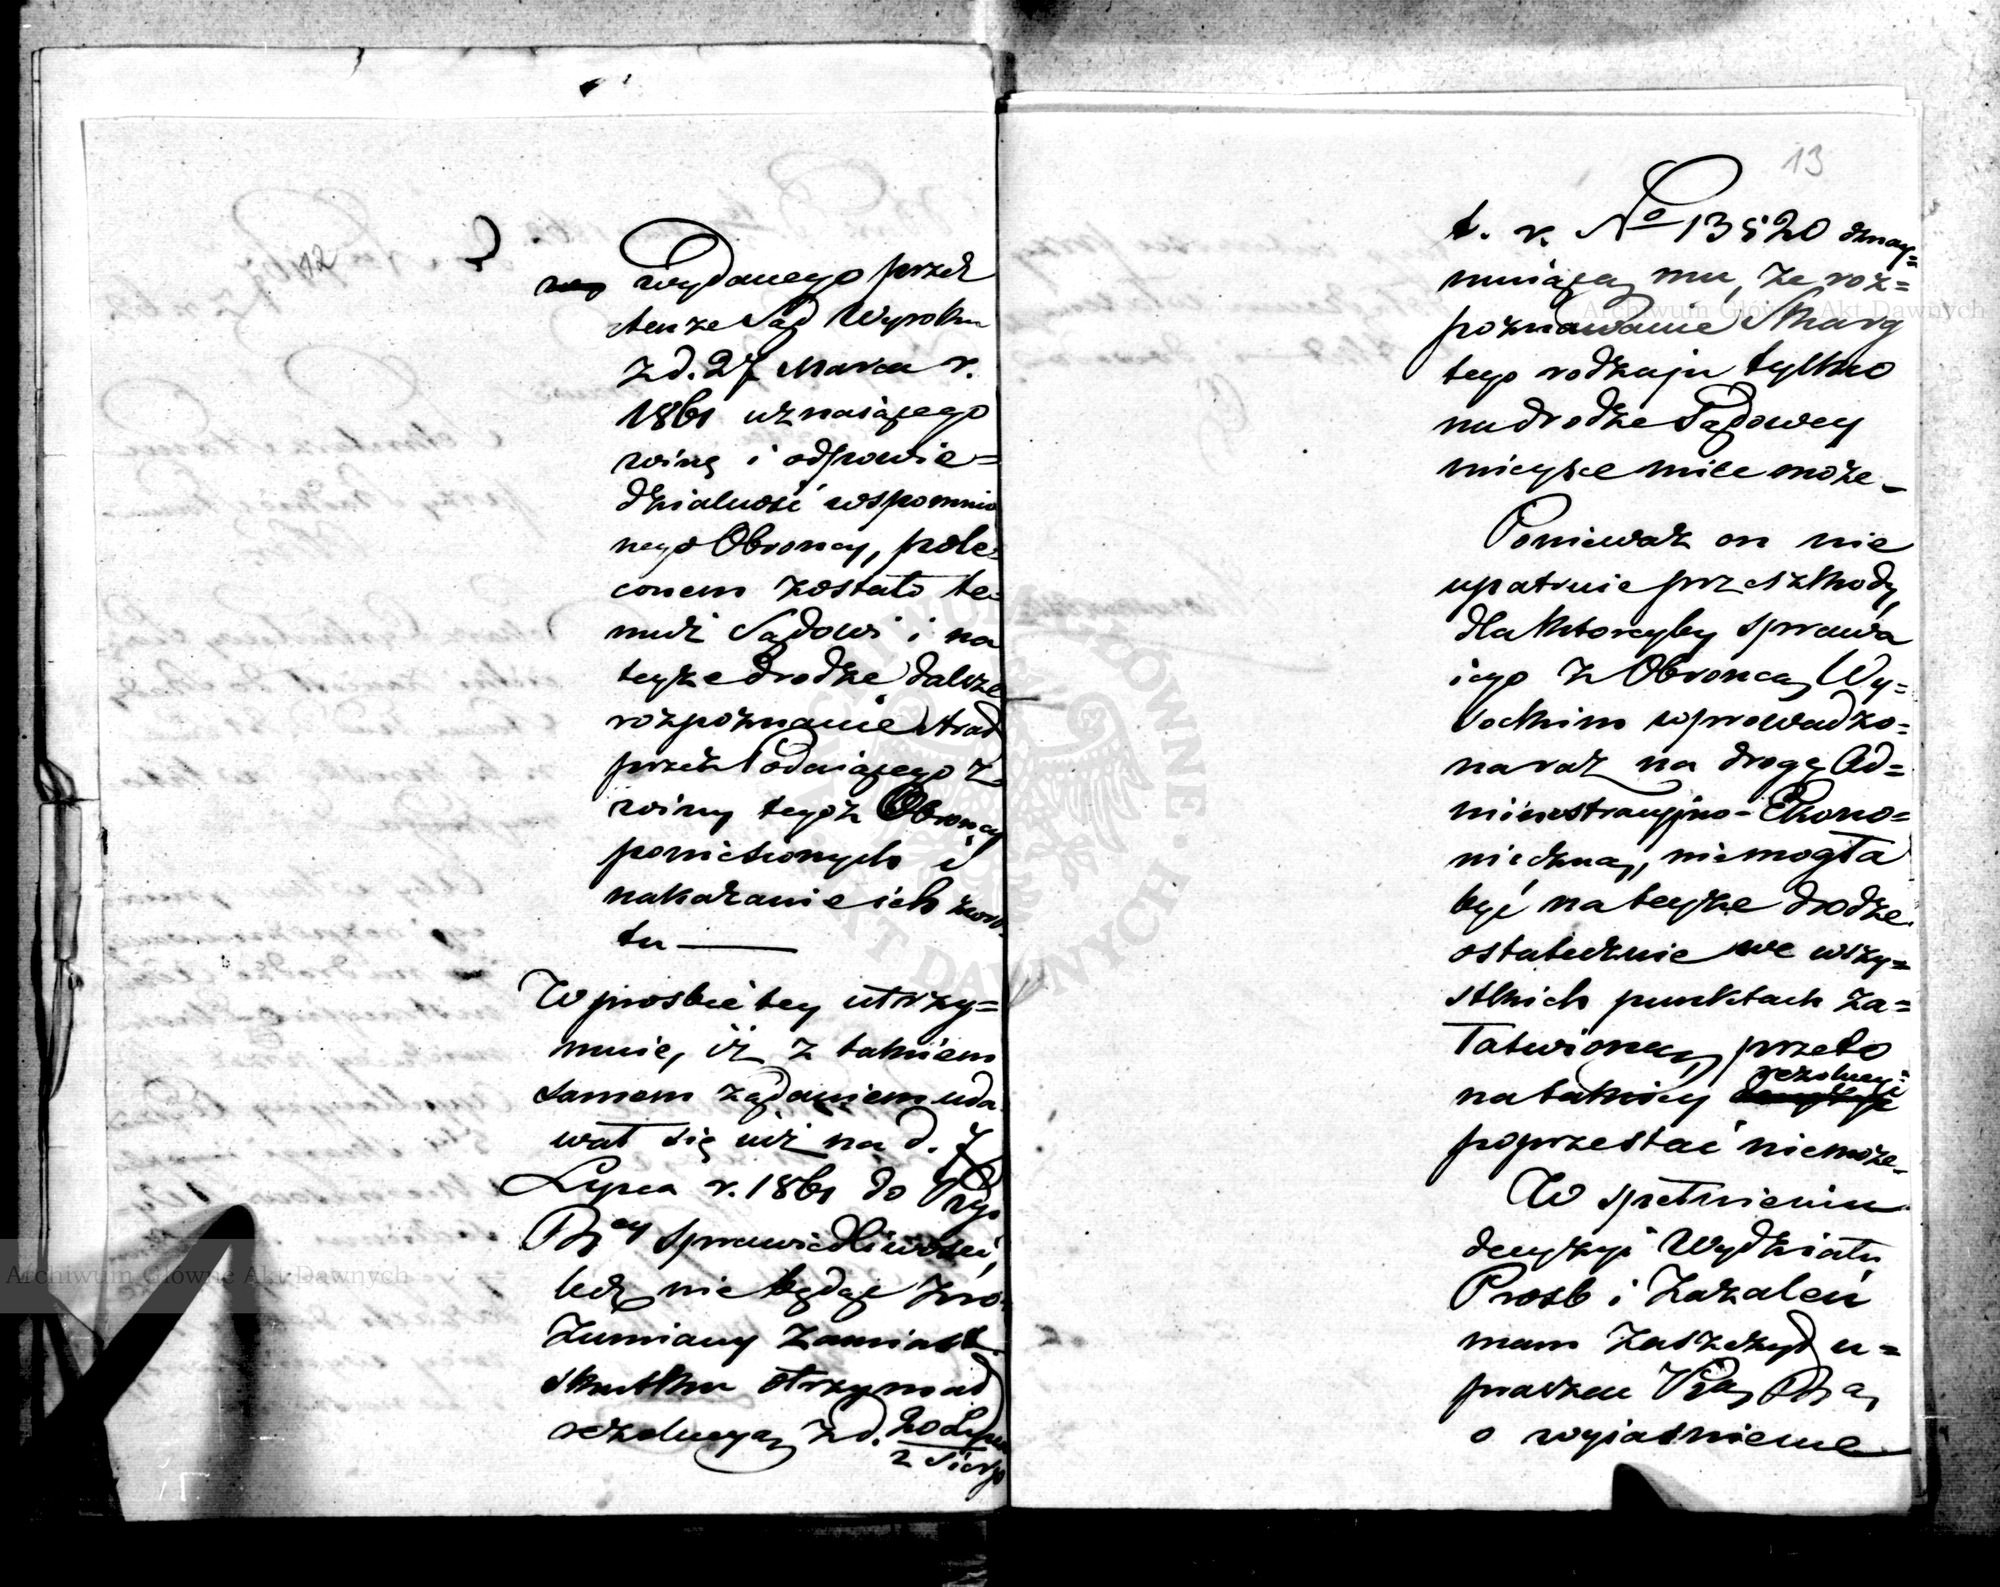 12
wydanego przez
tenże Sąd Wyroku
z d. 27 Marca r.
1861 uznaiącego
winę i odpowie=
dzialność wspomnio
nego Obrońcy, pole=
conem zostało te=
muż Sądowi i na
teyże drodze dalsze
rozpoznanie strat
przez Podaiącego z
winy tegoż Obrońcy
poniesionych i
nakazanie ich zwro=
tu —
W prośbie tey utrzy=
muie, iż z takiem
samem żądaniem uda
wał się iuż na d. 7
Lipca r. 1861 do
sprawiedliwości,
lecz nie będąc zro=
zumiany zamiast
skutku otrzymał
rezolucyą z d. 20 Lipca
2 Sierp
13
t. r. No 13520 oznay=
muiącą mu, że roz=
poznawanie skarg
tego rodzaju tylko
na drodze Sądowey
mieysce mieć może –
Ponieważ on nie
upatruie przeszkody,
dla któreyby sprawa
iego z Obrońcą Wy=
sockim wprowadzo=
na raz na drogę Ad=
ministracyjno-Ekono=
miczną, niemogła
być na teyże drodze
ostatecznie we wszy=
stkich punktach za=
łatwioną, przeto
na takiey rezolucyi
poprzestać niemoże –
W spełnieniu
decyzyi Wydziału
Prośb i Zażaleń
mam zaszczyt u=
praszać
o wyjaśnienie
Archiwum Główne Akt Dawnych
Archiwum Główne Akt Dawnych
ARCHIWUM GŁÓWNE AKT DAWNYCH